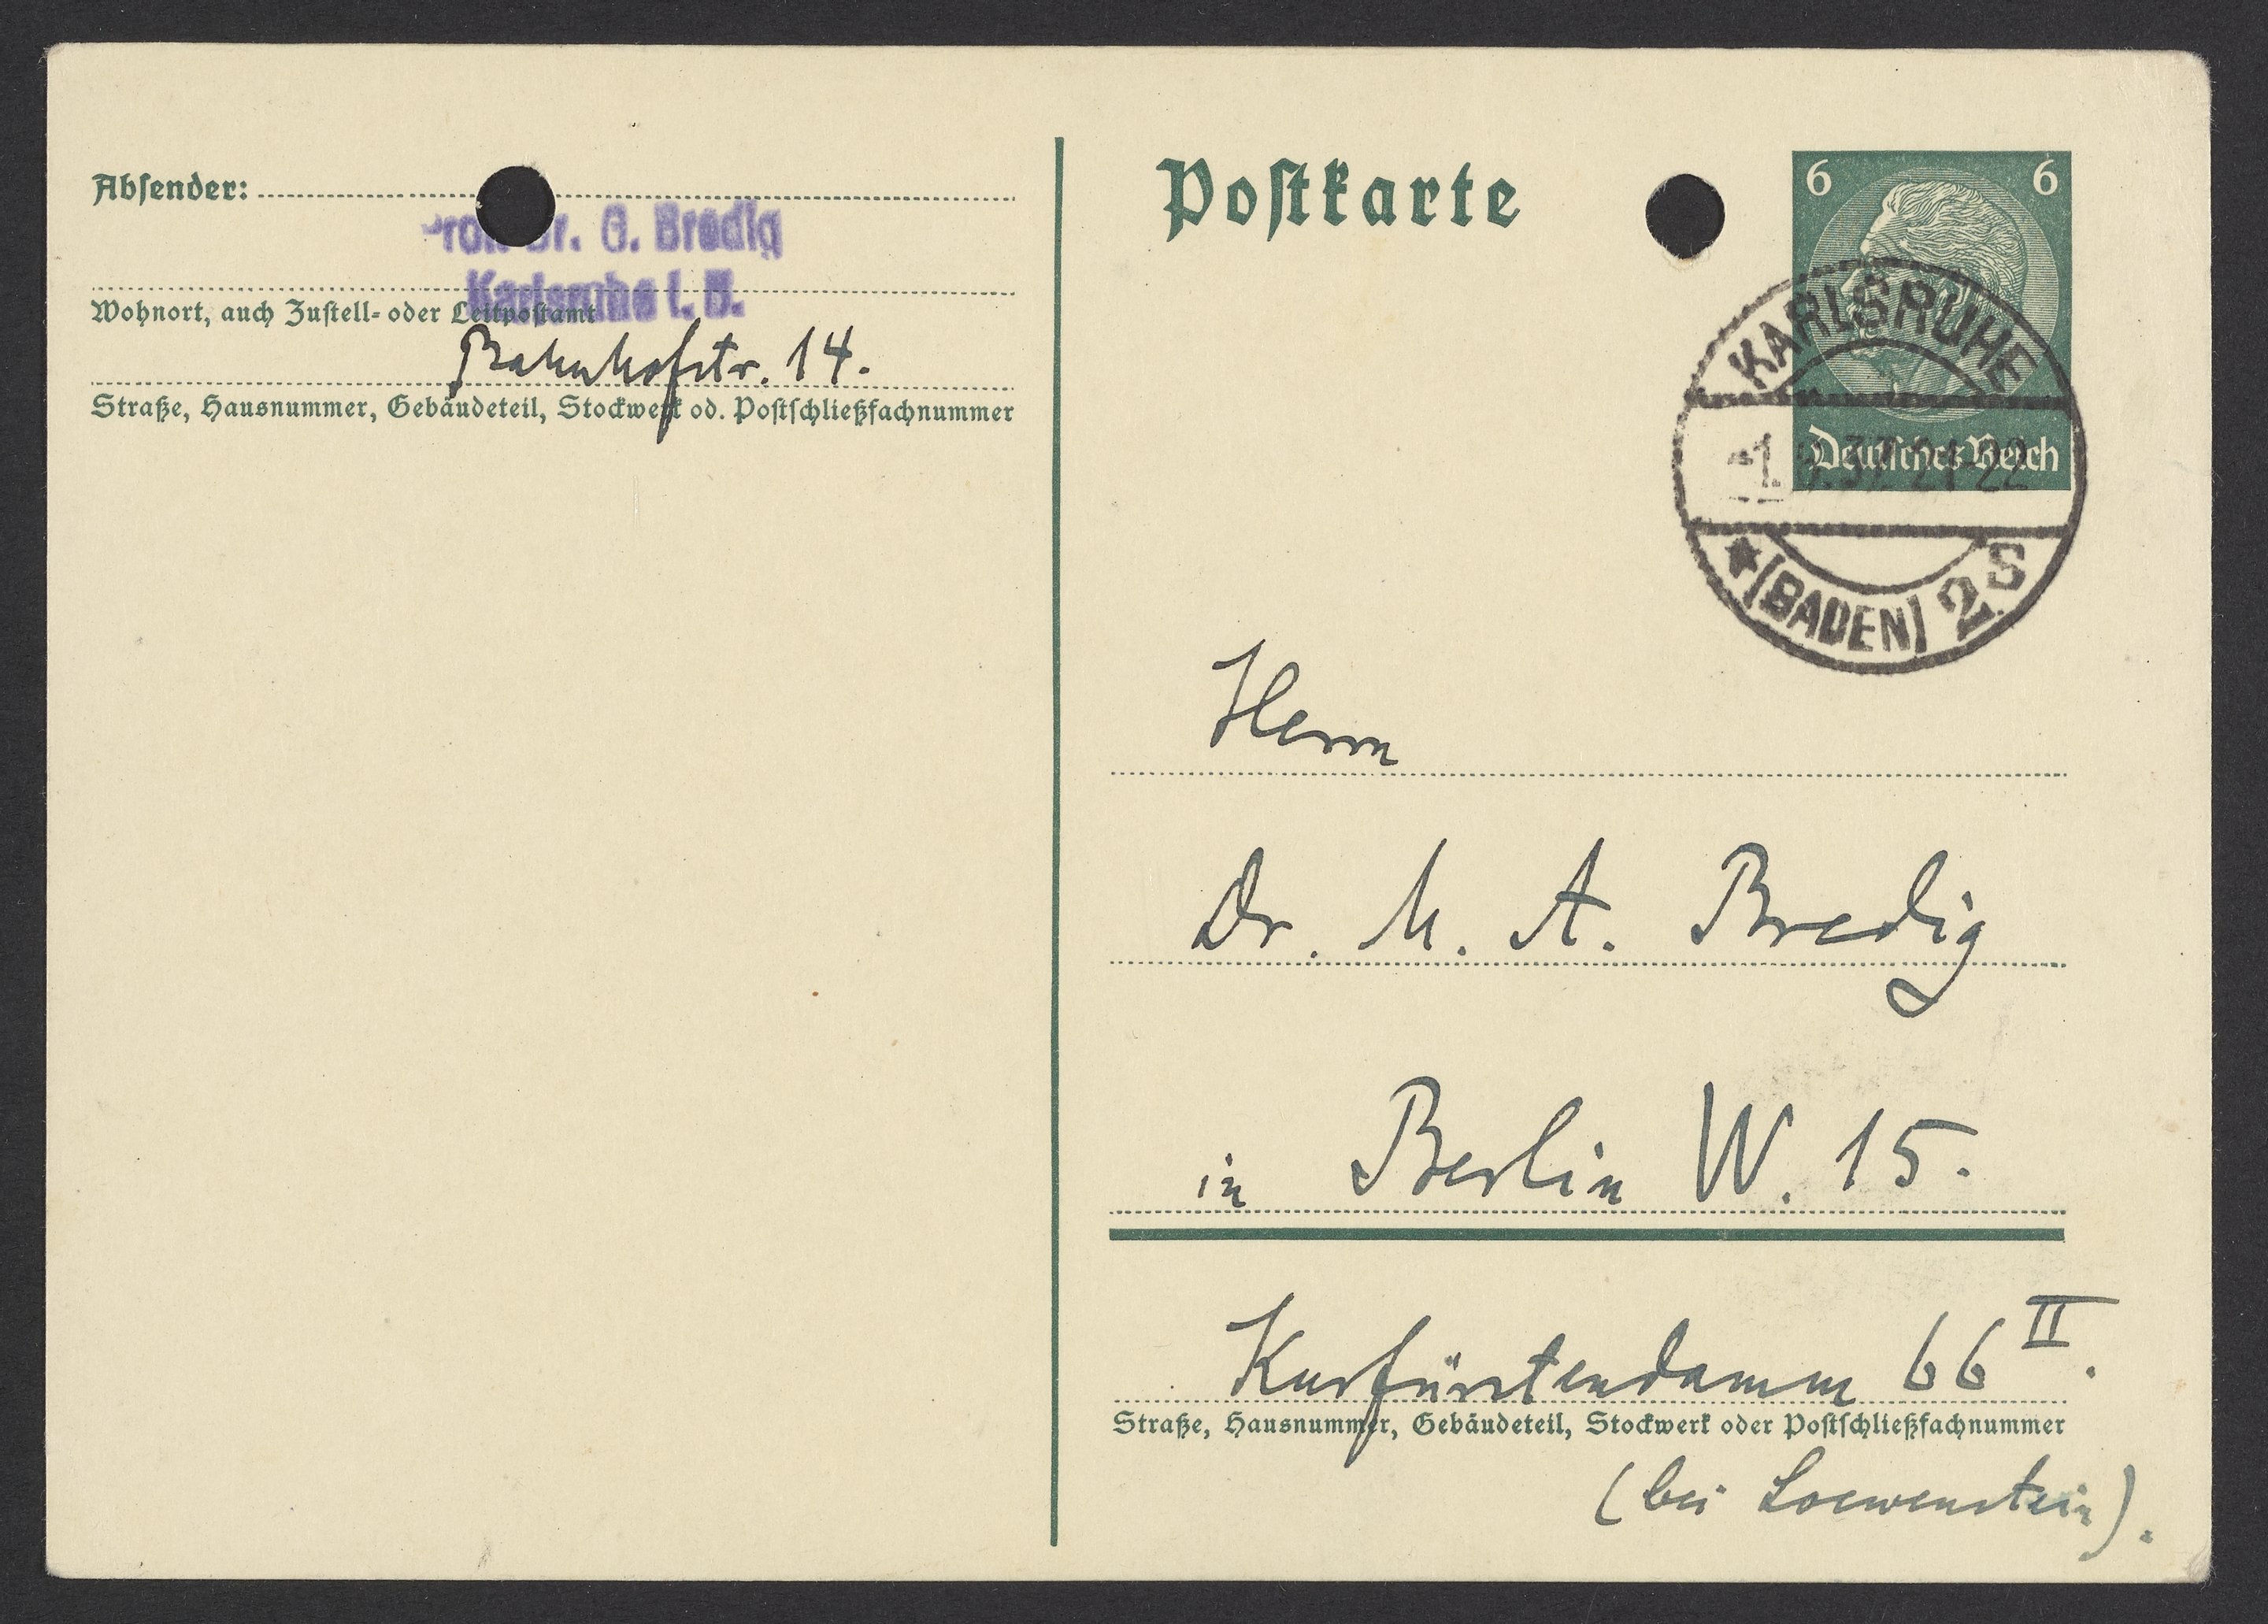 Absender:
Prof. Dr. G. Bredig
Karlsruhe i. B.
Wohnort, auch Zustell- oder Leitpostamt
Bahnhofstr. 14.
Straße, Hausnummer, Gebäudeteil, Stockwerk od. Postschließfachnummer
Postkarte
6 6
Deutsches Reich
KARLSRUHE
37 21-22
(BADEN) 2 S
Herrn
Dr. M. A. Bredig
in Berlin W. 15.
Kurfürstendamm 66 II.
Straße, Hausnummer, Gebäudeteil, Stockwerk oder Postschließfachnummer
(bei Loewenstein).